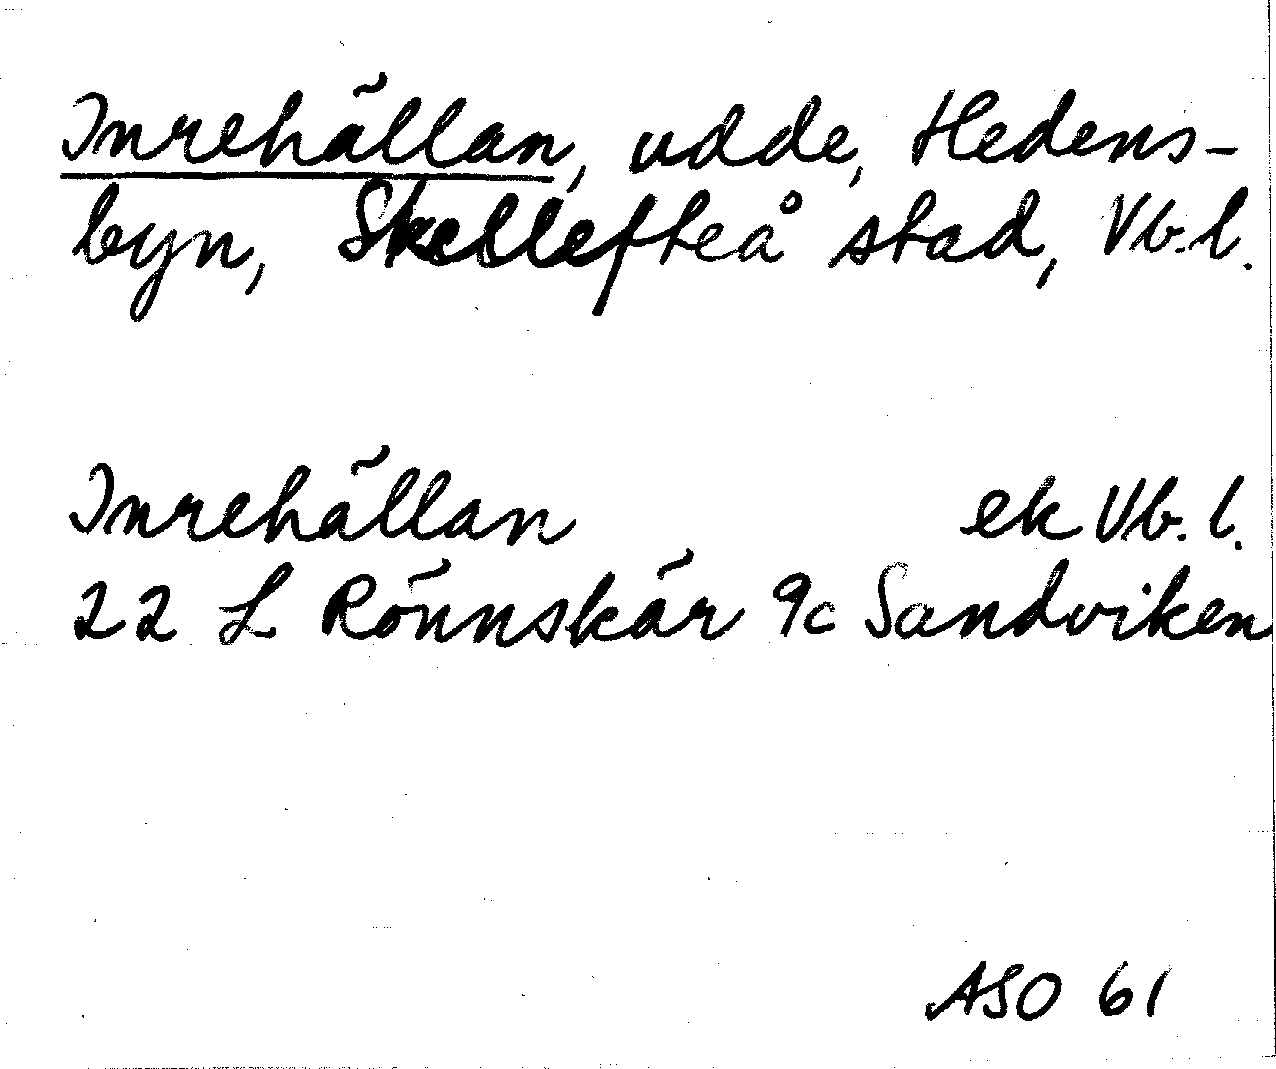 Inrehällan, udde, Hedens-
byn, Skellefteå stad, Vb. l.
Inrehällan ek Vb. l.
22 L Rönnskär 9c Sandviken
ASO 61